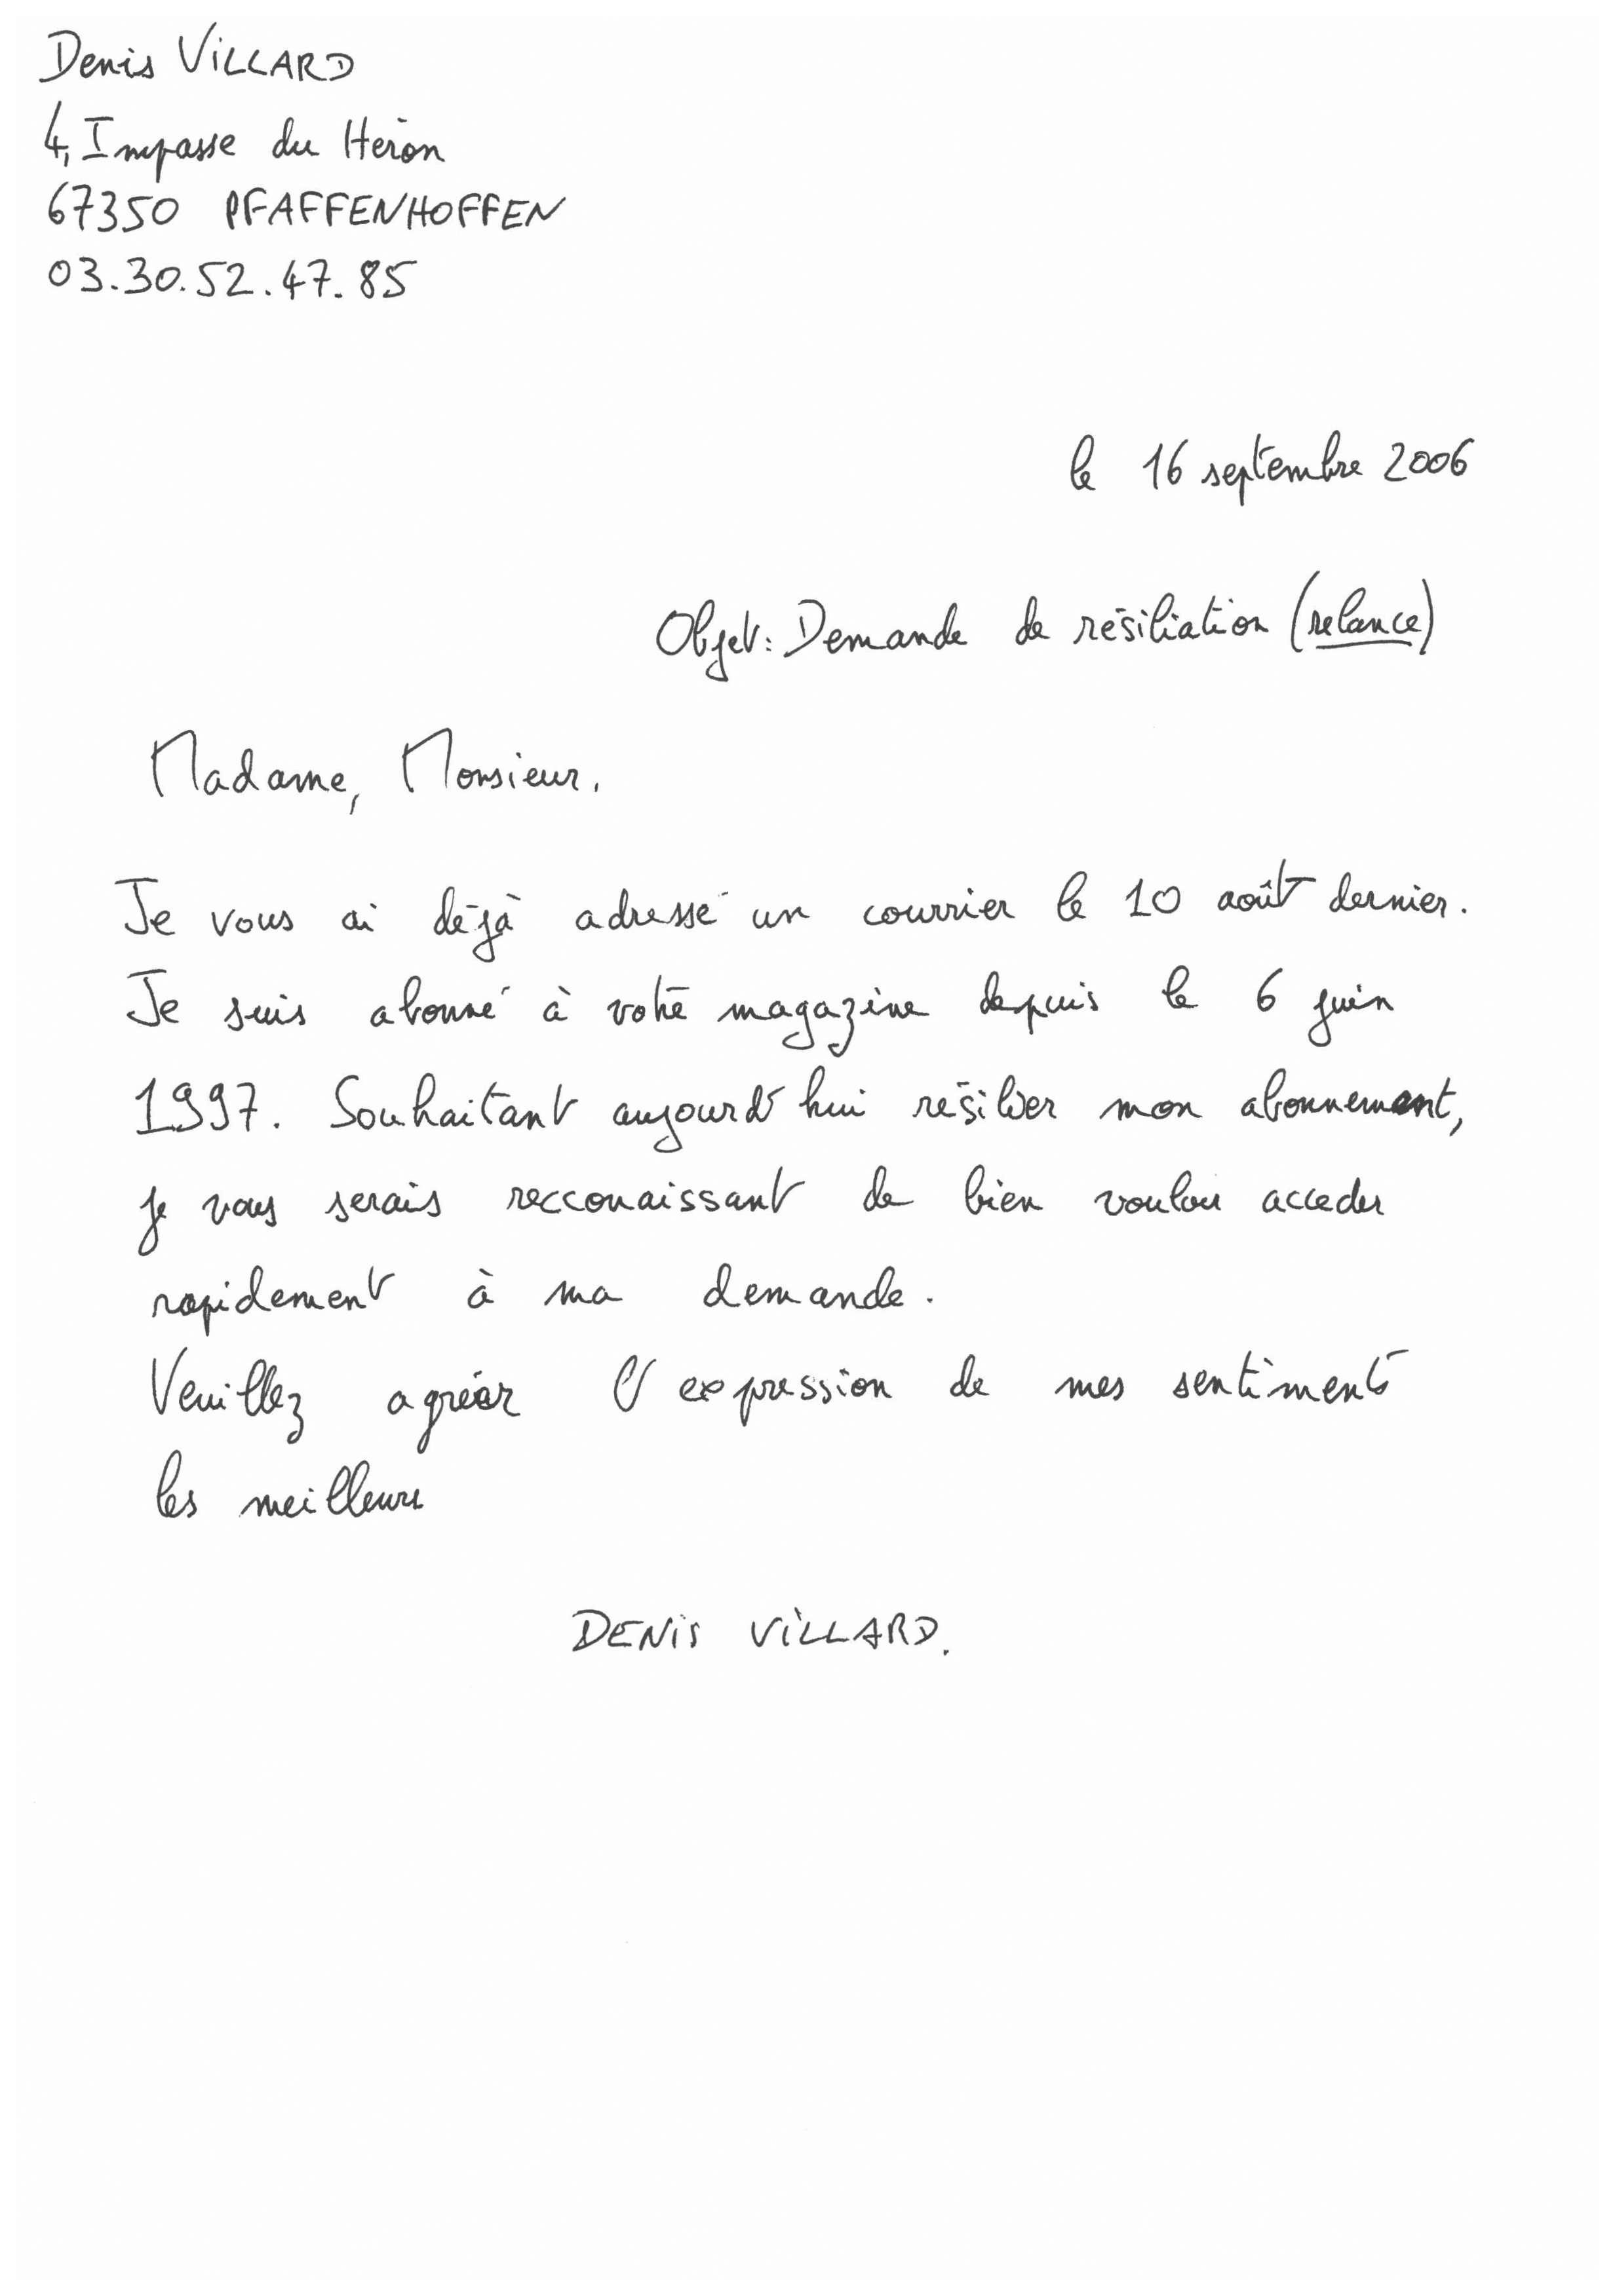 Denis VILLARD
4, Impasse du Héron
67350 PFAFFENHOFFEN
03.30.52.47.85
le 16 septembre 2006
Objet: Demande de résiliation (relance)
Madame, Monsieur.
Je vous ai déjà adressé un courrier le 10 août dernier.
Je suis abonné à votre magazine depuis le 6 juin
1997. Souhaitant aujourd'hui résilier mon abonnement,
je vous serais recconaissant de bien vouloir acceder
rapidement à ma demande.
Veuillez agréer l'expression de mes sentiments
les meilleurs
DENIS VILLARD.